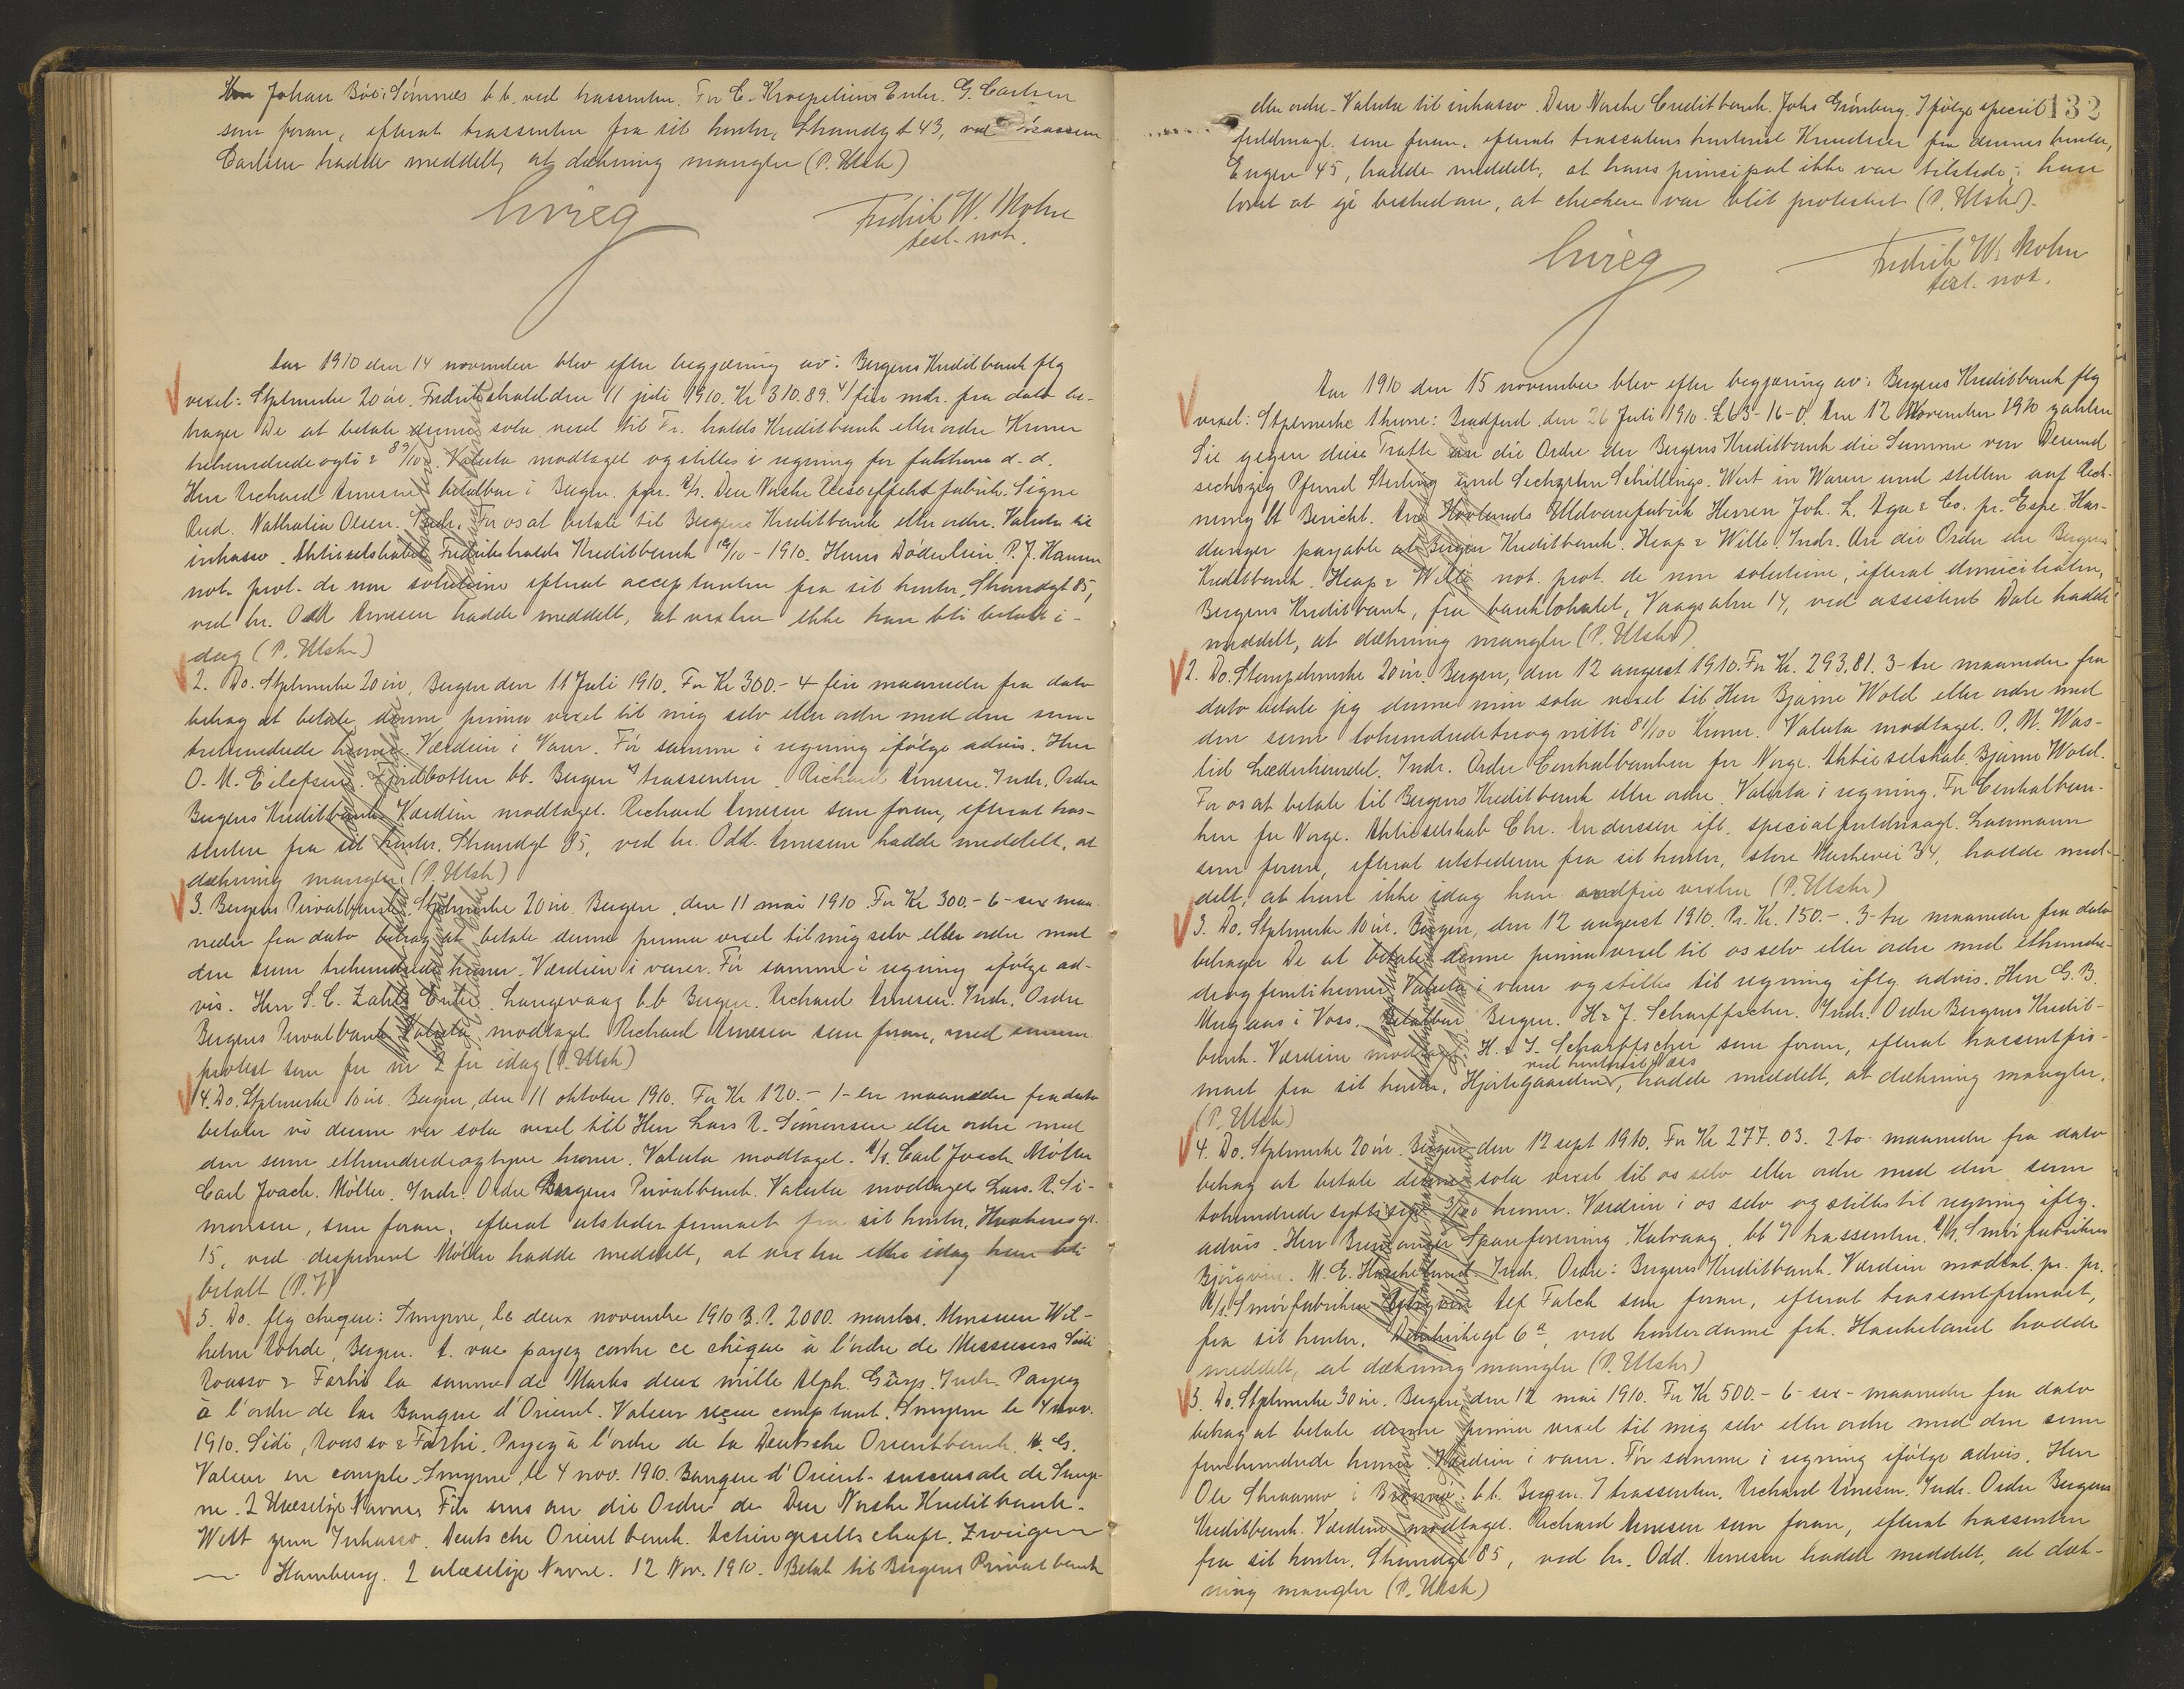 Johan Böe i Sömnes b.b. ved trassenten. For C. Kroepeliens Enke. G. Carlsen
som foran, efterat trassenten fra sit kontor, Strandgt 43, ved
Carlsen hadde meddelt, at dækning mangler (P. Utsh)
Fredrik W. Mohn
test. not.
Aar 1910 den 14 november blev efter begjæring av: Bergens Kreditbank flg
vexel: Stplmerke 20 öre. Fredrikshald den 11 juli 1910. Kr 310.89. 4/fire mdr. fra dato be-
hager De at betale denne sola vexel til Fr. halds Kreditbank eller ordre Kroner
trehundredeogti & 89/100. Valuta modtaget og stilles i regning for faktura d. d.
Herr Richard Arnesen betalbar i Bergen. ppr. A/s. Den Norske Reiseffekt fabrik. Signe
Rud. Nathalia Olsen. Indr. For os at betale til Bergens Kreditbank eller ordre. Valuta til
inkasso. Aktieselskabet Fredrikshalds Kreditbank 10/10 - 1910. Hans Döderlein. P. J. Hansen
not. prot. de non solutione efterat acceptanten fra sit kontor, Strandgt 85,
ved hr. Odd Arnesen hadde meddelt, at vexlen ikke kan bli betalt i-
dag (P. Utshr)
2. Do. Stplmerke 20 öre, Bergen den 11 Juli 1910. For Kr 300.- 4 fire maaneder fra dato
behag at betale denne prima vexel til mig selv eller ordre med den sum
trehundrede kroner. Værdien i Varer. För samme i regning ifölge advis. Herr
O. M. Eilefsen. Fjordbotten bb. Bergen trassenten. Richard Arnesen. Indr. Ordre
Bergens Kreditbank Værdien modtaget. Richard Arnesen som foran, efterat tras-
senten fra sit kontor. Strandgt 85, ved hr. Odd. Arnesen hadde meddelt, at
dækning mangler (P. Utsh)
3. Bergens Privatbank. Stplmerke 20 öre. Bergen, den 11 mai 1910. For Kr 300.- 6 - sex maa-
neder fra dato behag at betale denne prima vexel til mig selv eller ordre med
den sum trehundrede kroner. Værdien i varer. För samme i regning ifölge ad-
vis. Herr S. C. Zahls Enke. Langevaag b.b Bergen. Richard Arnesen. Indr. Ordre
Bergens Privatbank Valuta modtaget. Richard Arnesen som foran, med samme
protest som for nr 2 for idag (P. Utsh)
4. Do. Stplmerke 10 öre. Bergen, den 11 oktober 1910. For Kr 120.- 1 - en maaneder fra dato
betaler vi denne vor sola vexel til Herr Lars R. Simonsen eller ordre med
den sum ethundredeogtyve kroner. Valuta modtaget. A/s. Carl Joach. Möller
Carl Joach. Möller. Indr. Ordre Bergens Privatbank. Valuta modtaget Lars. R. Si-
monsen, som foran, efterat utsteder firmaet fra sit kontor,
15, ved disponent Möller hadde meddelt, at vexlen ikke idag kan bli
betalt (P. )
5. Do. flg cheque: Smyrne, le deux novembre 1910 B. P. 2000. marks. Monsieur Wil-
helm Rohde, Bergen. A. vue payez contre ce chèque à l'ordre de Messieurs Sidi
Rousso & Farhi la somme de Marks deux mille Alph. Indr. Payez
à l'ordre de la Banque d'Orient. Valeur reçue comptant. Smyrne le 4 nov.
1910. Sidi, Rousso & Farhi. Payez à l'ordre de la Deutsche Orientbank. A. G.
Valeur en compte Smyrne, le 4 nov. 1910. Banque d'Orient - succursale de Smyr-
ne. 2 Ulæselige Navne. Für uns an die Ordre der Den Norske Kreditbank.
Wert zum Inkasso. Deutsche Orientbank. Actiengesellschaft. Zweignn
Hamburg. 2 ulæselige Navne. 12 Nov. 1910. Betal til Bergens Privatbank
132
eller ordre. Valuta til inkasso. Den Norske Creditbank. Johs Grönberg. Ifölge special
fuldmagt. som foran, efterat trassatens kontorist Knudsen fra dennes kontor,
Engen 45, hadde meddelt, at hans principal ikke var tilstede; han
lovet at gi besked om, at checken var blit protestert (P. Utshr).
Fredrik W. Mohn
test. not.
Aar 1910 den 15 november blev efter begjæring av: Bergens Kreditbank flg
vexel: Stplmerke threne: Bradford den 26 Juli 1910. £63-16-0. Am 12 November 1910 zahlen
Sie gegen diese Tratte an die Ordre der Bergens Kreditbank die Summe von Dreiund
sechszig Pfund Sterling und Sechzehn Schillings. Wert in Waren und stellen auf Rech-
nung lt Bericht. An Hovlands Uldvarefabrik Herren Joh. L. Aga & Co. pr. Espe. Har-
danger payable at Bergens Kreditbank. Heap & Wille. Indr. An die Ordre der Bergens
Kreditbank. Heap & Wille not. prot. de non solutione, efterat domiciliaten,
Bergens Kreditbank, fra banklokalet, Vaagsalm 14, ved assistent Dale hadde
meddelt, at dækning mangler (P. Utshr)
2. Do. Stempelmerke 20 öre. Bergen, den 12 august 1910. For Kr. 293,81. 3 - tre maaneder fra
dato betale jeg denne min sola vexel til Herr Bjarne Wold eller ordre med
den sum tohundredetreognitti 81/100 Kroner. Valuta modtaget. P. M. Was-
tid Læderhandel. Indr. Ordre Centralbanken for Norge. Aktieselskab. Bjarne Wold.
For os at betale til Bergens Kreditbank eller ordre. Valuta i regning. For Centralban-
ken for Norge. Aktieselskab Chr. Andersen ifl. specialfuldmagt. Laumann
som foran, efterat utstederen fra sit kontor, store Markevei 34, hadde med-
delt, at han ikke idag kan indfrie vexlen (P. Utshr)
3. Do. Stplmerke 10 öre. Bergen, den 12 august 1910. Pr. Kr. 150.-. 3 - tre maaneder fra dato
behager De at betale denne prima vexel til os selv eller ordre med ethundre-
deogfemti kroner. Valuta i varer og stilles til regning iflg. advis. Herr G. B.
Mugaas i Voss. Betalbar Bergen. H & J. Scharffscher. Indr. Ordre Bergens Kredit-
bank. Værdien modtaget H. & J. Scharffscher som foran, efterat trassentfir-
ved kontorist Næss
maet fra sit kontor, Hjortegaarden, hadde meddelt, at dækning mangler.
(P. Utsh)
4. Do. Stplmerke 20 öre. Bergen den 12 sept 1910. For Kr 277.03. 2 to maaneder fra dato
behag at betale denne sola vexel til os selv eller ordre med den sum
tohundrede syttisyv 3/100 kroner. Værdien i os selv og stilles til regning iflg.
advis. Herr Bremanger Spareforening. Kalvaag. bb trassenten. A/s. Smörfabriken
Björgvin. M. E. Haukeland. Indr. Ordre: Bergens Kreditbank. Værdien modtat. pr. pr.
A/s. Smörfabriken Björgvin Alf Falch som foran, efterat trassentfirmaet,
fra sit kontor, 6a, ved kontordame frk. Haukeland hadde
meddelt, at dækning mangler (P. Utshr)
5. Do. Stplmerke 30 öre. Bergen den 12 mai 1910. For Kr 500.- 6 - sex - maaneder fra dato
behag at betale denne prima vexel til mig selv eller ordre med den sum
femhundrede kroner. Værdien i varer. För samme i regning ifölge advis. Herr
Ole Skraamo i Brönnö. b.b. Bergen. trassenten. Richard Arnesen. Indr. Ordre Bergens
Kreditbank. Værdien modtaget. Richard Arnesen som foran, efterat trassenten
fra sit kontor. Strandgt 85, ved hr. Odd. Arnesen hadde meddelt, at dæk-
ning mangler (P. Utsh)